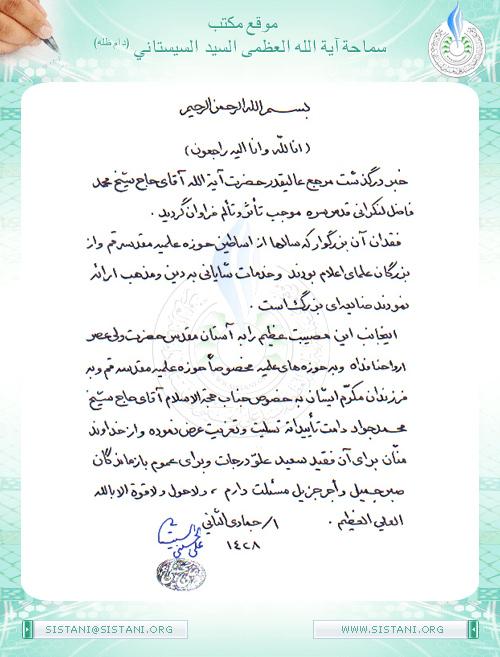 موقع مكتب
سماحة آية الله العظمى السيد السيستاني (دام ظله)
بسم الله الرحمن الرحيم
(انا لله وانا اليه راجعون)
خبر درگذشت مرجع عاليقدر حضرت آية الله آقاى حاج شيخ محمد
فاضل لنكرانى قدس سره موجب تأثر وتألم فراوان گرديد .
فقدان آن بزرگوار كه سالها از اساطين حوزه علميه مقدسه قم واز
بزرگان علماى اعلام بودند وخدمات شايانى به دين ومذهب ارائه
نمودند ضايعه اى بزرگ است .
اينجانب اين مصيبت عظيم را به آستان مقدس حضرت ولى عصر
ارواحنا فداه وبه حوزه هاى علميه مخصوصاً حوزه علميه مقدسه قم وبه
فرزندان مكرّم ايشان به خصوص جناب حجة الاسلام آقاى حاج شيخ
محمد جواد دامت تأييداته تسليت وتعزيت عرض نموده واز خداوند
منّان براى آن فقيد سعيد علوّ درجات وبراى عموم بازماندگان
صبر جميل وأجر جزيل مسئلت دارم ، ولاحول ولاقوة الا بالله
العلي العظيم .
١/جمادى الثاني
١٤٢٨
علي الحسيني السيستاني
SISTANI@SISTANI.ORG
WWW.SISTANI.ORG